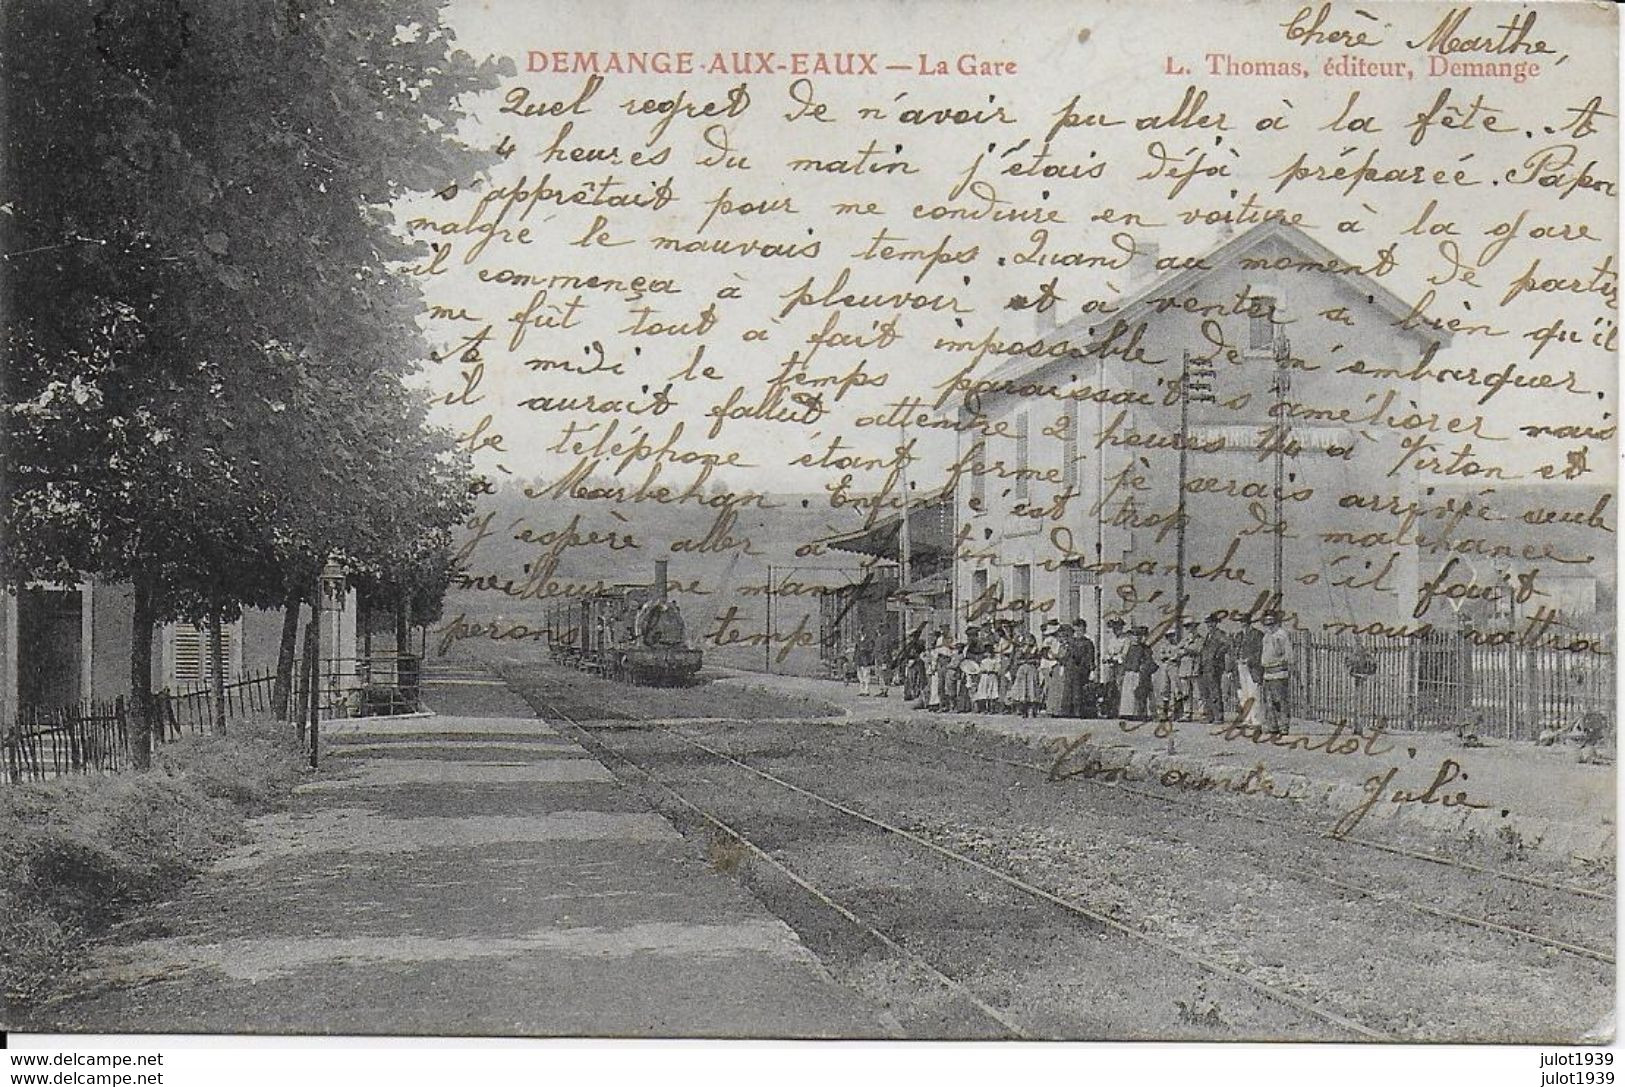 Chère Marthe,
DEMANGE-AUX-EAUX — La Gare
L. Thomas, éditeur, Demange
Quel regret de n'avoir pu aller à la fête. A
4 heures du matin j'étais déjà préparée. Papa
s'apprêtait pour me conduire en voiture à la gare
malgré le mauvais temps. Quand au moment de partir
il commença à pleuvoir et à venter si bien qu'il
me fût tout à fait impossible de m'embarquer.
A midi le temps paraissait s'améliorer mais
il aurait fallut attendre 2 heures 1/4 à Virton et
à Marbehan.
Le téléphone étant fermé je serais arrivée seule
Enfin c'est trop de malchance.
J'espère aller à dimanche s'il fait
meilleur ne manque pas d'y aller nous rattra
perons le temps
A bientôt.
Ton amie Julie.
www.delcampe.net
julot1939
www.delcampe.net
julot1939